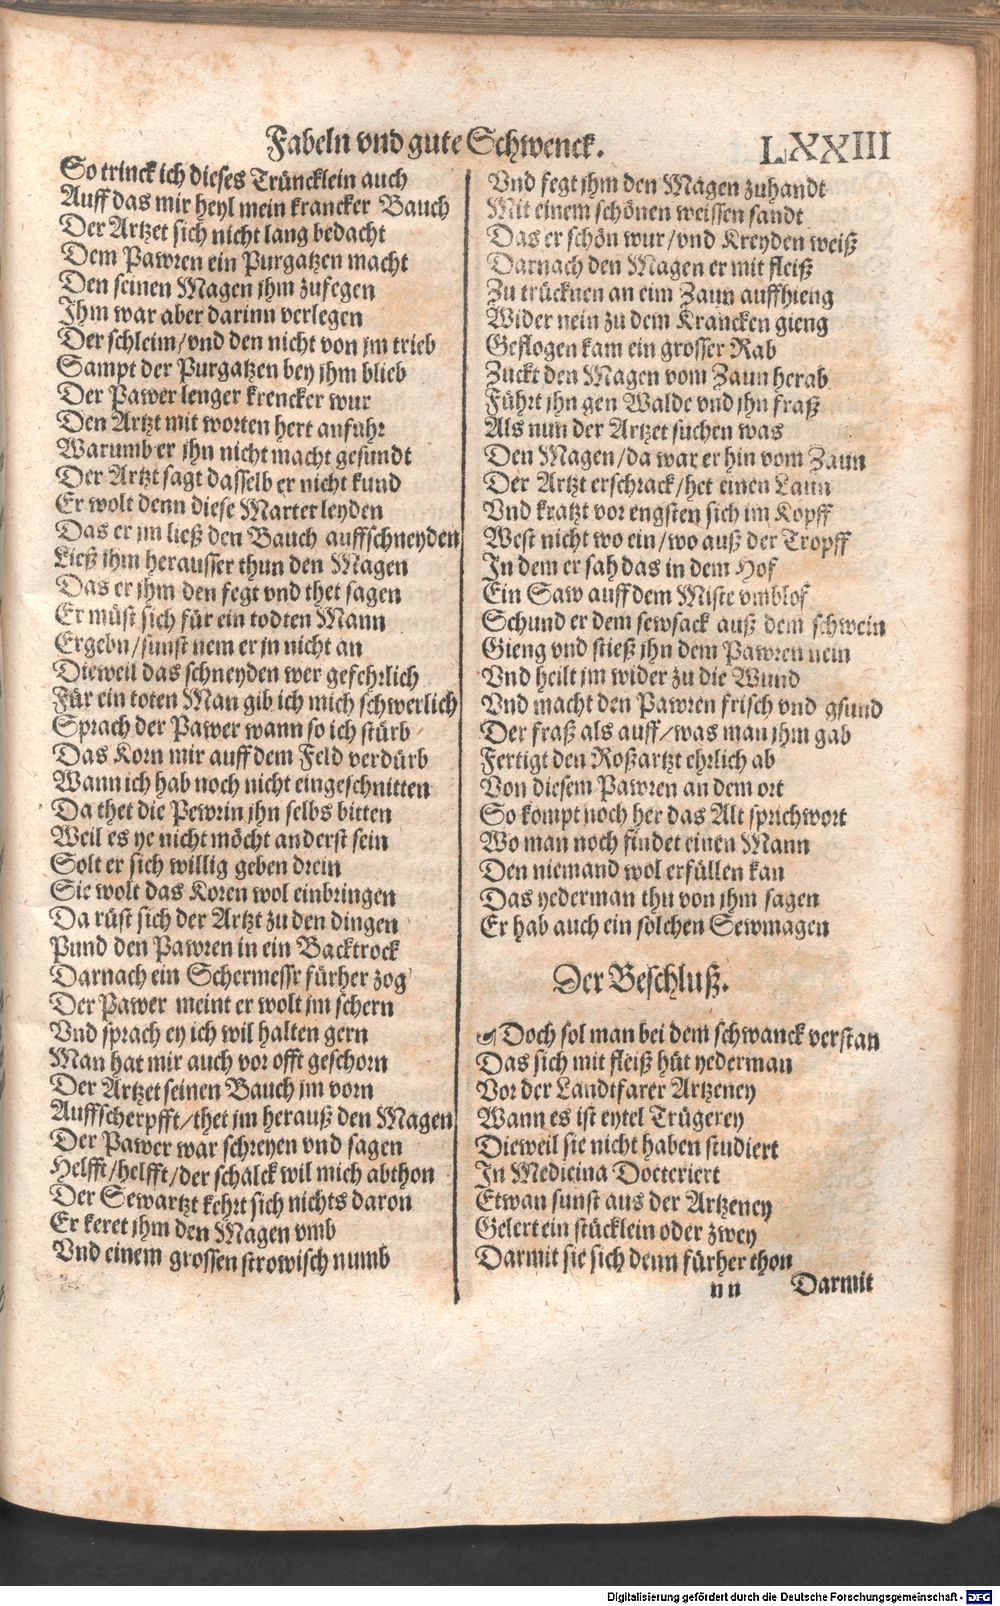 Fabeln vnd gute Schwenck. LXXIII
So trinck ich dieses Trüncklein auch
Auff das mir heyl mein krancker Bauch
Der Artzet sich nicht lang bedacht
Dem Pawren ein Purgatzen macht
Den seinen Magen jhm zufegen
Ihm war aber darinn verlegen
Der schleim/vnd den nicht von jm trieb
Sampt der Purgatzen bey jhm blieb
Der Pawer lenger krencker wur
Den Artzt mit worten hert anfuhr
Warumb er jhn nicht macht gesundt
Der Artzt sagt dasselb er nicht kund
Er wolt denn diese Marter leyden
Das er jm ließ den Bauch auffschneyden
Ließ jhm herausser thun den Magen
Das er jhm den fegt vnd thet sagen
Er müst sich für ein todten Mann
Ergebn/sunst nem er jn nicht an
Dieweil das schneyden wer gefehrlich
Für ein toten Man gib ich mich schwerlich
Sprach der Pawer wann so ich stürb
Das Korn mir auff dem Feld verdürb
Wann ich hab noch nicht eingeschnitten
Da thet die Pewrin jhn selbs bitten
Weil es ye nicht möcht anderst sein
Solt er sich willig geben drein
Sie wolt das Koren wol einbringen
Da rüst sich der Artzt zu den dingen
Pund den Pawren in ein Backtrock
Darnach ein Schermessr fürher zog
Der Pawer meint er wolt jm schern
Vnd sprach ey ich wil halten gern
Man hat mir auch vor offt geschorn
Der Artzet seinen Bauch jm vorn
Auffscherpfft/thet jm herauß den Magen
Der Pawer war schreyen vnd sagen
Helfft/helfft/der schalck wil mich abthon
Der Sewartzt kehrt sich nichts daron
Er keret jhm den Magen vmb
Vnd einem grossen strowisch numb
Vnd fegt jhm den Magen zuhandt
Mit einem schönen weissen sandt
Das er schön wur/vnd Kreyden weiß
Darnach den Magen er mit fleiß
Zu trücknen an eim Zaun auffhieng
Wider nein zu dem Krancken gieng
Geflogen kam ein grosser Rab
Zuckt den Magen vom Zaun herab
Führt jhn gen Walde vnd jhn fraß
Als nun der Artzet suchen was
Den Magen/da war er hin vom Zaun
Der Artzt erschrack/het einen Laun
Vnd kratzt vor engsten sich im Kopff
West nicht wo ein/wo auß der Tropff
In dem er sah das in dem Hof
Ein Saw auff dem Miste vmblof
Schund er dem sewsack auß dem schwein
Gieng vnd stieß jhn dem Pawren nein
Vnd heilt jm wider zu die Wund
Vnd macht den Pawren frisch vnd gsund
Der fraß als auff/was man jhm gab
Fertigt den Roßartzt ehrlich ab
Von diesem Pawren an dem ort
So kompt noch her das Alt sprichwort
Wo man noch findet einen Mann
Den niemand wol erfüllen kan
Das yederman thu von jhm sagen
Er hab auch ein solchen Sewmagen
Der Beschluß.
Doch sol man bei dem schwanck verstan
Das sich mit fleiß hüt yederman
Vor der Landtfarer Artzeney
Wann es ist eytel Trügerey
Dieweil sie nicht haben studiert
In Medicina Docteriert
Etwan sunst aus der Artzeney
Gelert ein stücklein oder zwey
Darmit sie sich denn fürher thon
nn Darmit
Digitalisierung gefördert durch die Deutsche Forschungsgemeinschaft - DFG